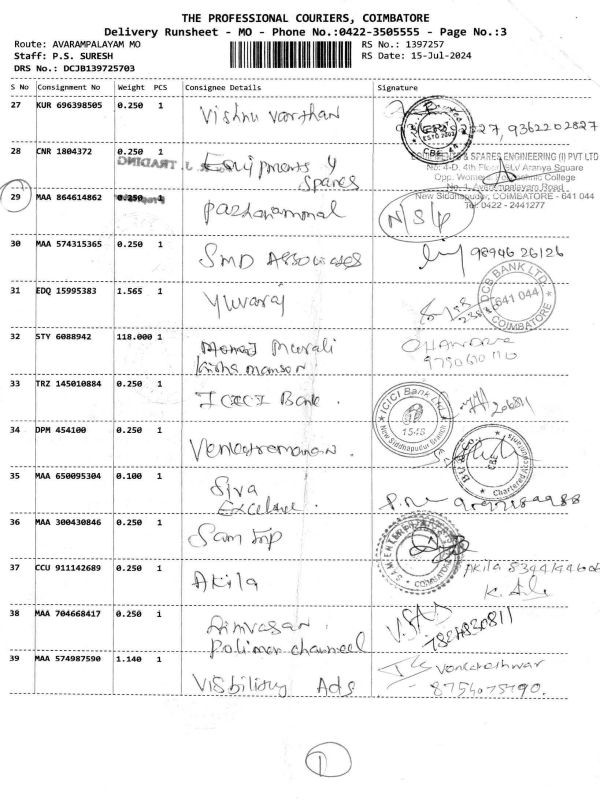 THE PROFESSIONAL COURIERS, COIMBATORE
Delivery Runsheet - MO - Phone No.:0422-3505555 - Page No.:3
Route: AVARAMPALAYAM MO
RS No.: 1397257
Staff: P.S. SURESH
RS Date: 15-Jul-2024
DRS No.: DCJB139725703
S No Consignment No Weight PCS Consignee Details Signature
27 KUR 696398505 0.250 1 Vishnu Varthan
9362202827
28 CNR 1804372 0.250 1 Equipments &
Spares
& SPARES ENGINEERING (I) PVT LTD
No: 4-D, 4th Floor, SLV Aranya Square
Opp. Women's Polytechnic College
No. 1, Avarampalayam Road
New Siddhapudur, COIMBATORE - 641 044
Tel: 0422 - 2441277
29 MAA 864614862 0.250 1 Pazhanammal
N/S/P
30 MAA 574315365 0.250 1 SMD Associates
98946 26126
31 EDQ 15995383 1.565 1 Yuvaraj
DCB BANK LTD.
641 044
COIMBATORE
32 STY 6088942 118.000 1 Murali
33 TRZ 145010884 0.250 1 ICICI Bank.
ICICI Bank Ltd
1548
New Siddhapudur Branch
34 DPM 454100 0.250 1 Venkatraman.
Chartered Accountants
35 MAA 650095304 0.100 1 Siva
36 MAA 300430846 0.250 1 Sam
COIMBATORE
37 CCU 911142689 0.250 1 Akila
Akila
38 MAA 704668417 0.250 1
Polimer channel
39 MAA 574987590 1.140 1 Visbility Ads
Venkateshwar
1